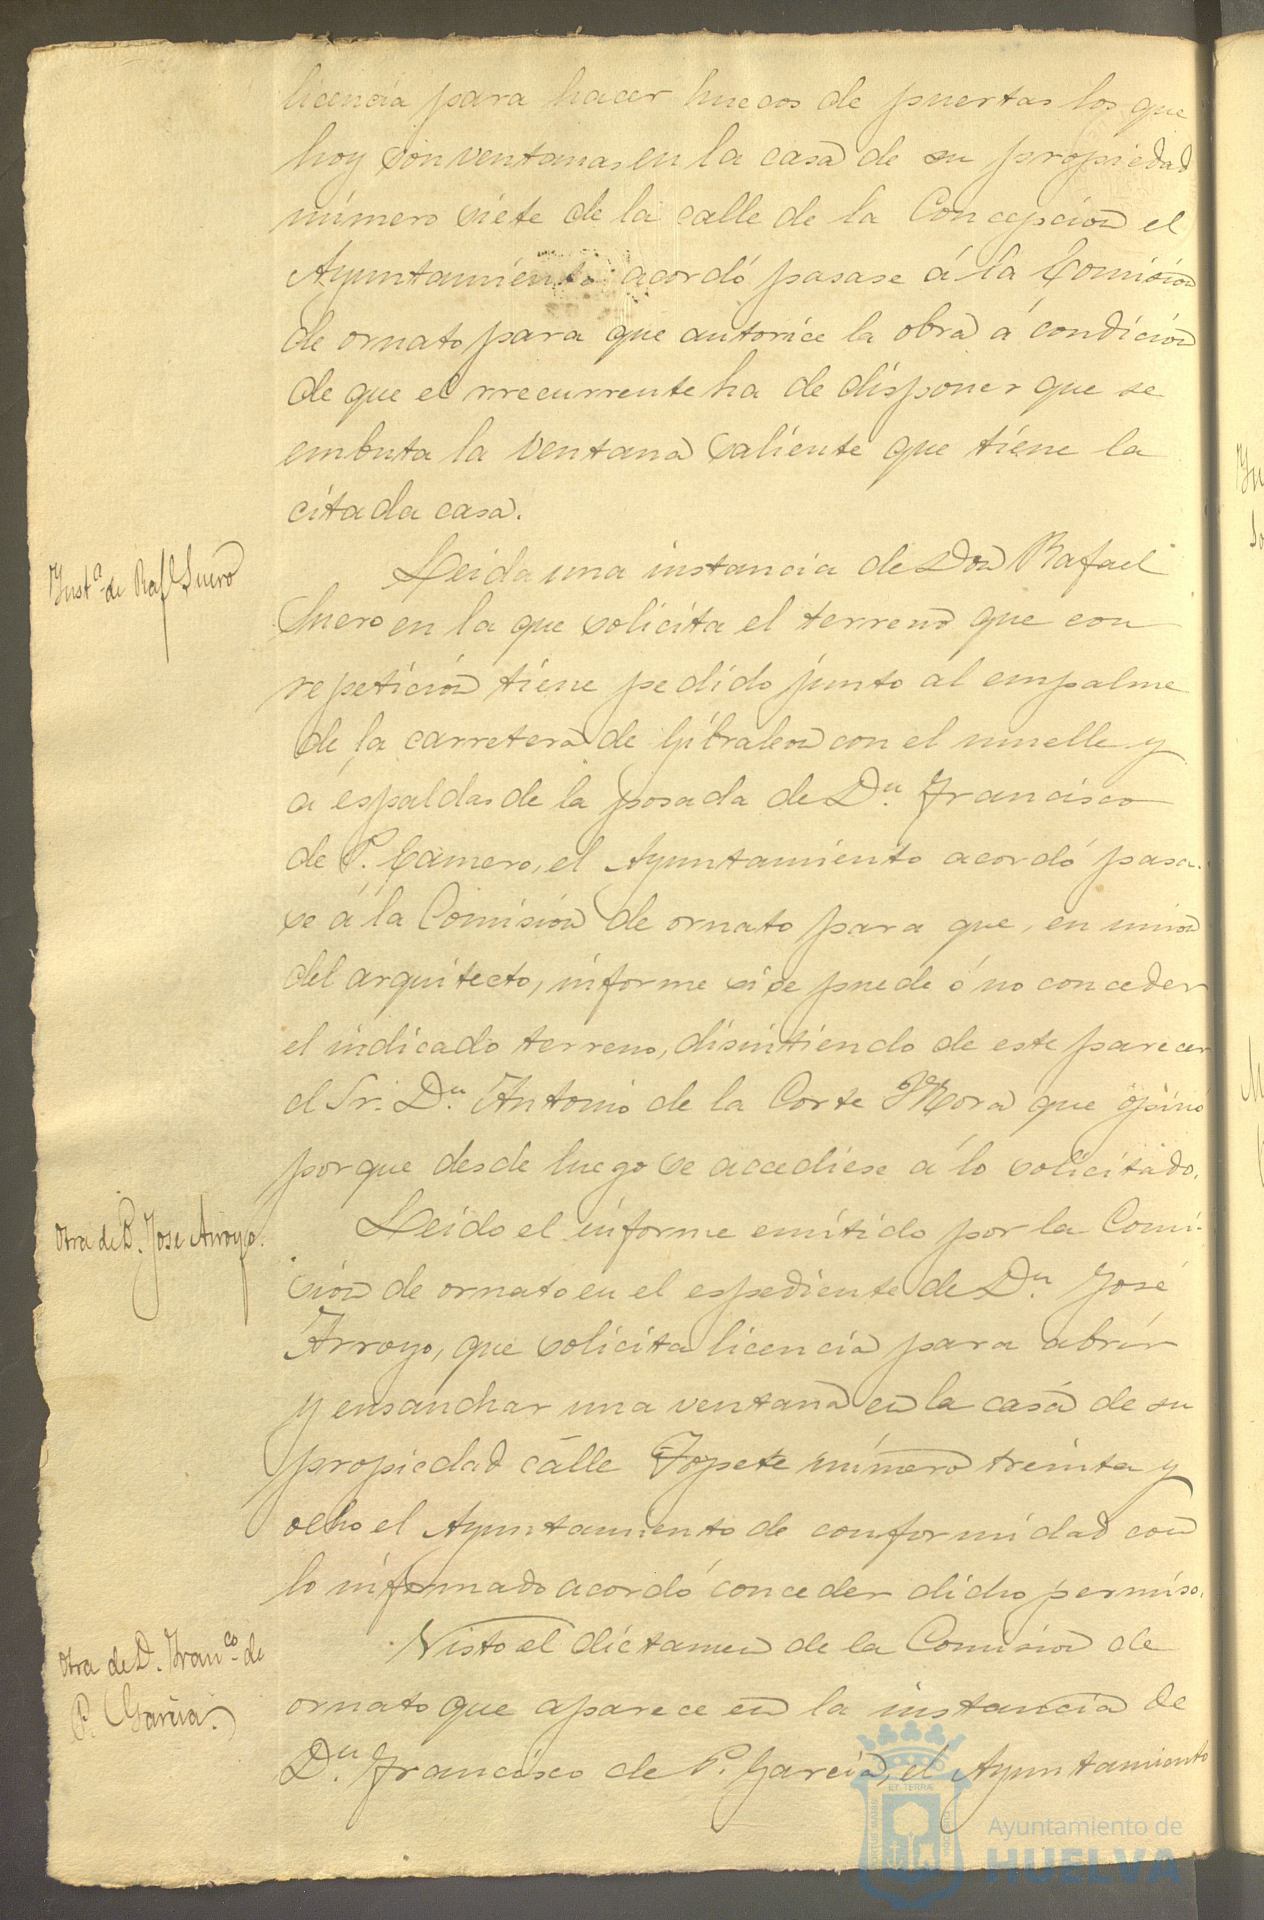 licencia para hacer huecos de puertas los que
hoy son ventanas en la casa de su propiedad
número siete de la calle de la Concepcion el
Ayuntamiento acordó pasase á la Comision
de ornato para que autorice la obra á condicion
de que el recurrente ha de disponer que se
embuta la ventana saliente que tiene la
citada casa.
Inst.ª de Raf.l Suero
Leida una instancia de Don Rafael
Suero en la que solicita el terreno que con
repetición tiene pedido junto al empalme
de la carretera de Gibraleon con el muelle y
á espaldas de la posada de D.n Francisco
de P. Camero, el Ayuntamiento acordó pasa-
se á la Comisión de ornato para que, en union
del arquitecto, informe si se puede ó no conceder
el indicado terreno, disintiendo de este parecer
el Sr. D.n Antonio de la Corte y Mora que opinó
porque desde luego se accediese á lo solicitado.
Otra de D. Jose Arroyo.
Leido el informe emitido por la Comi-
sion de ornato en el espediente de D.n José
Arroyo, que solicita licencia para abrir
y ensanchar una ventana en la casa de su
propiedad calle Topete número treinta y
ocho el Ayuntamiento de conformidad con
lo informado acordó conceder dicho permiso.
Otra de D. Fran.co de
P. Garcia.
Visto el dictamen de la Comision de
ornato que aparece en la instancia de
D.n Francisco de P. Garcia, el Ayuntamiento
Ayuntamiento de
HUELVA